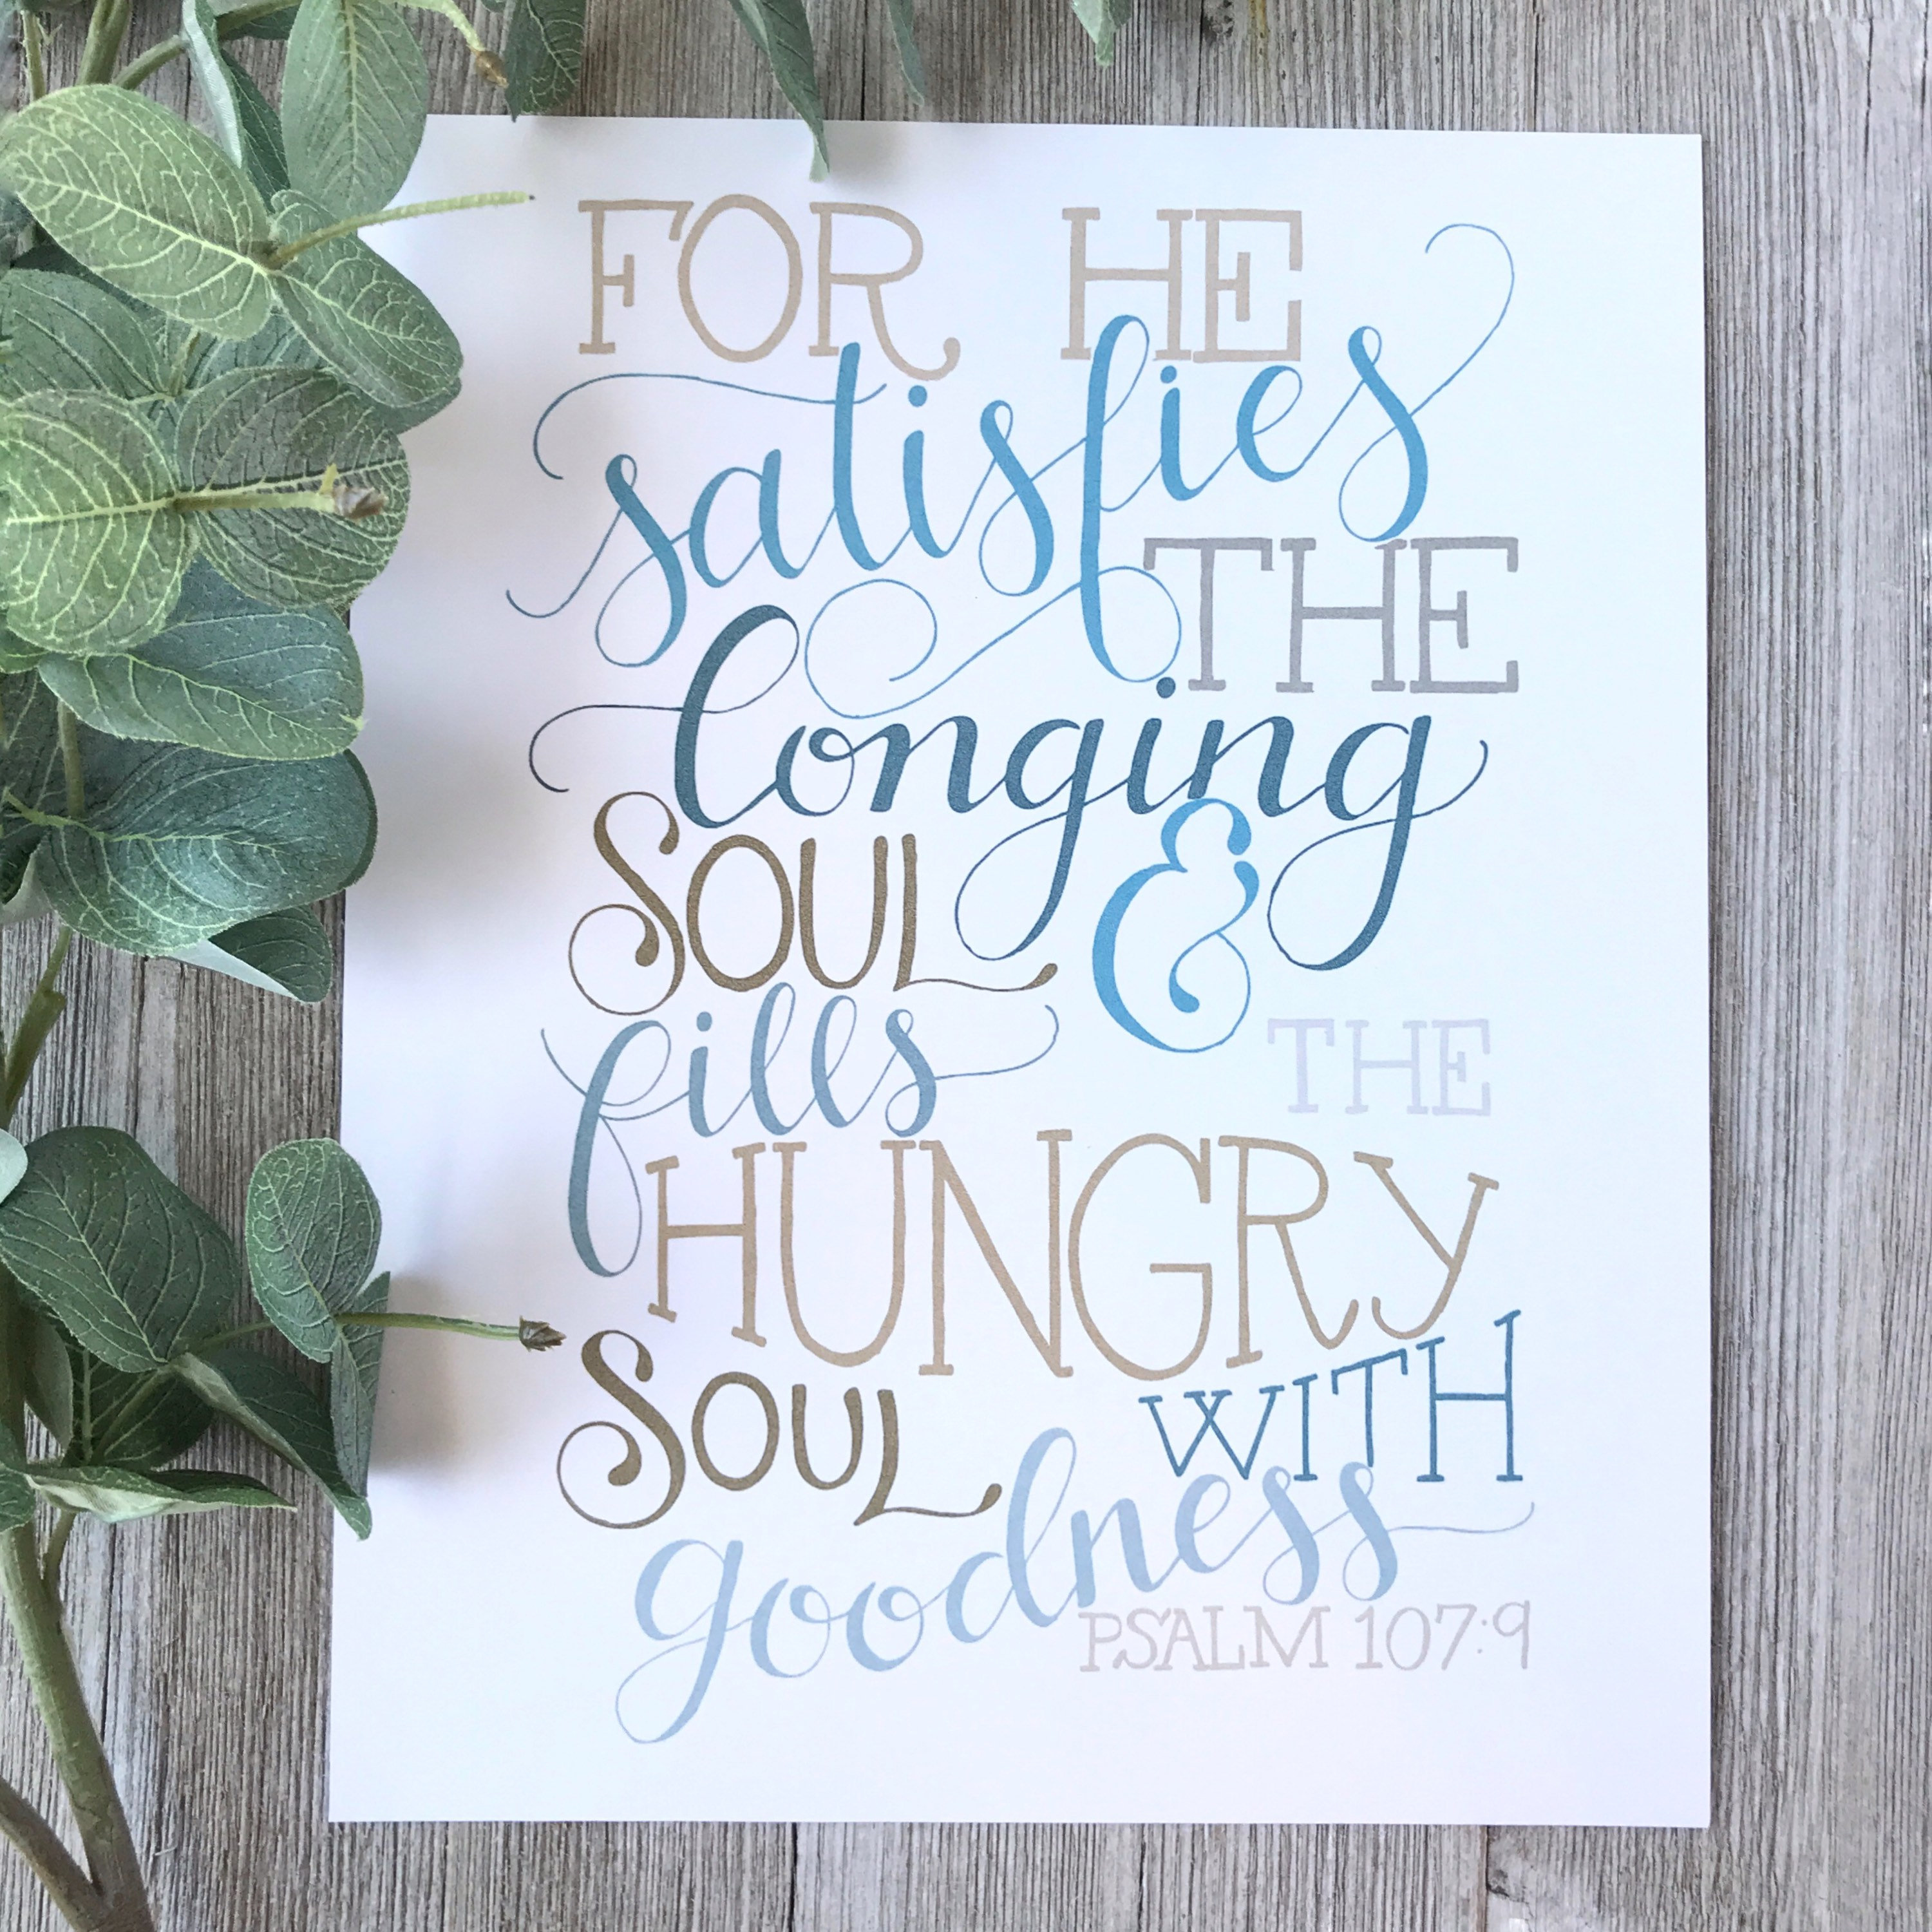 FOR HE
satisfies
THE
longing
SOUL &
fills THE
HUNGRY
SOUL WITH
goodness
PSALM 107:9